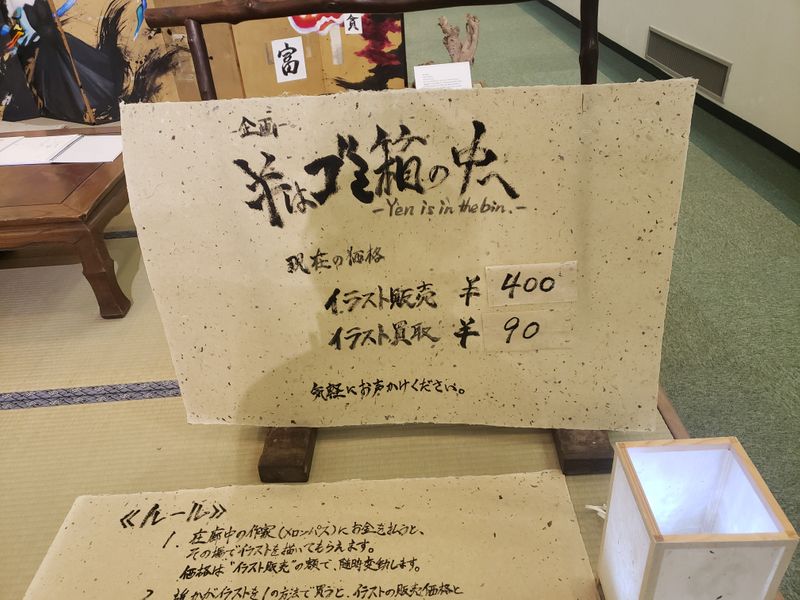 富
貪
-企画-
¥はゴミ箱の中へ
-Yen is in the bin.-
現在の価格
イラスト販売 ¥ 400
イラスト買取 ¥ 90
気軽にお声かけください。
≪ルール≫
1. 在廊中の作家(メロンパス)にお金を払うと、
その場でイラストを描いてもらえます。
価格は"イラスト販売"の額で、随時変動します。
2. 誰かがイラストを1の方法で買うと、イラストの販売価格と